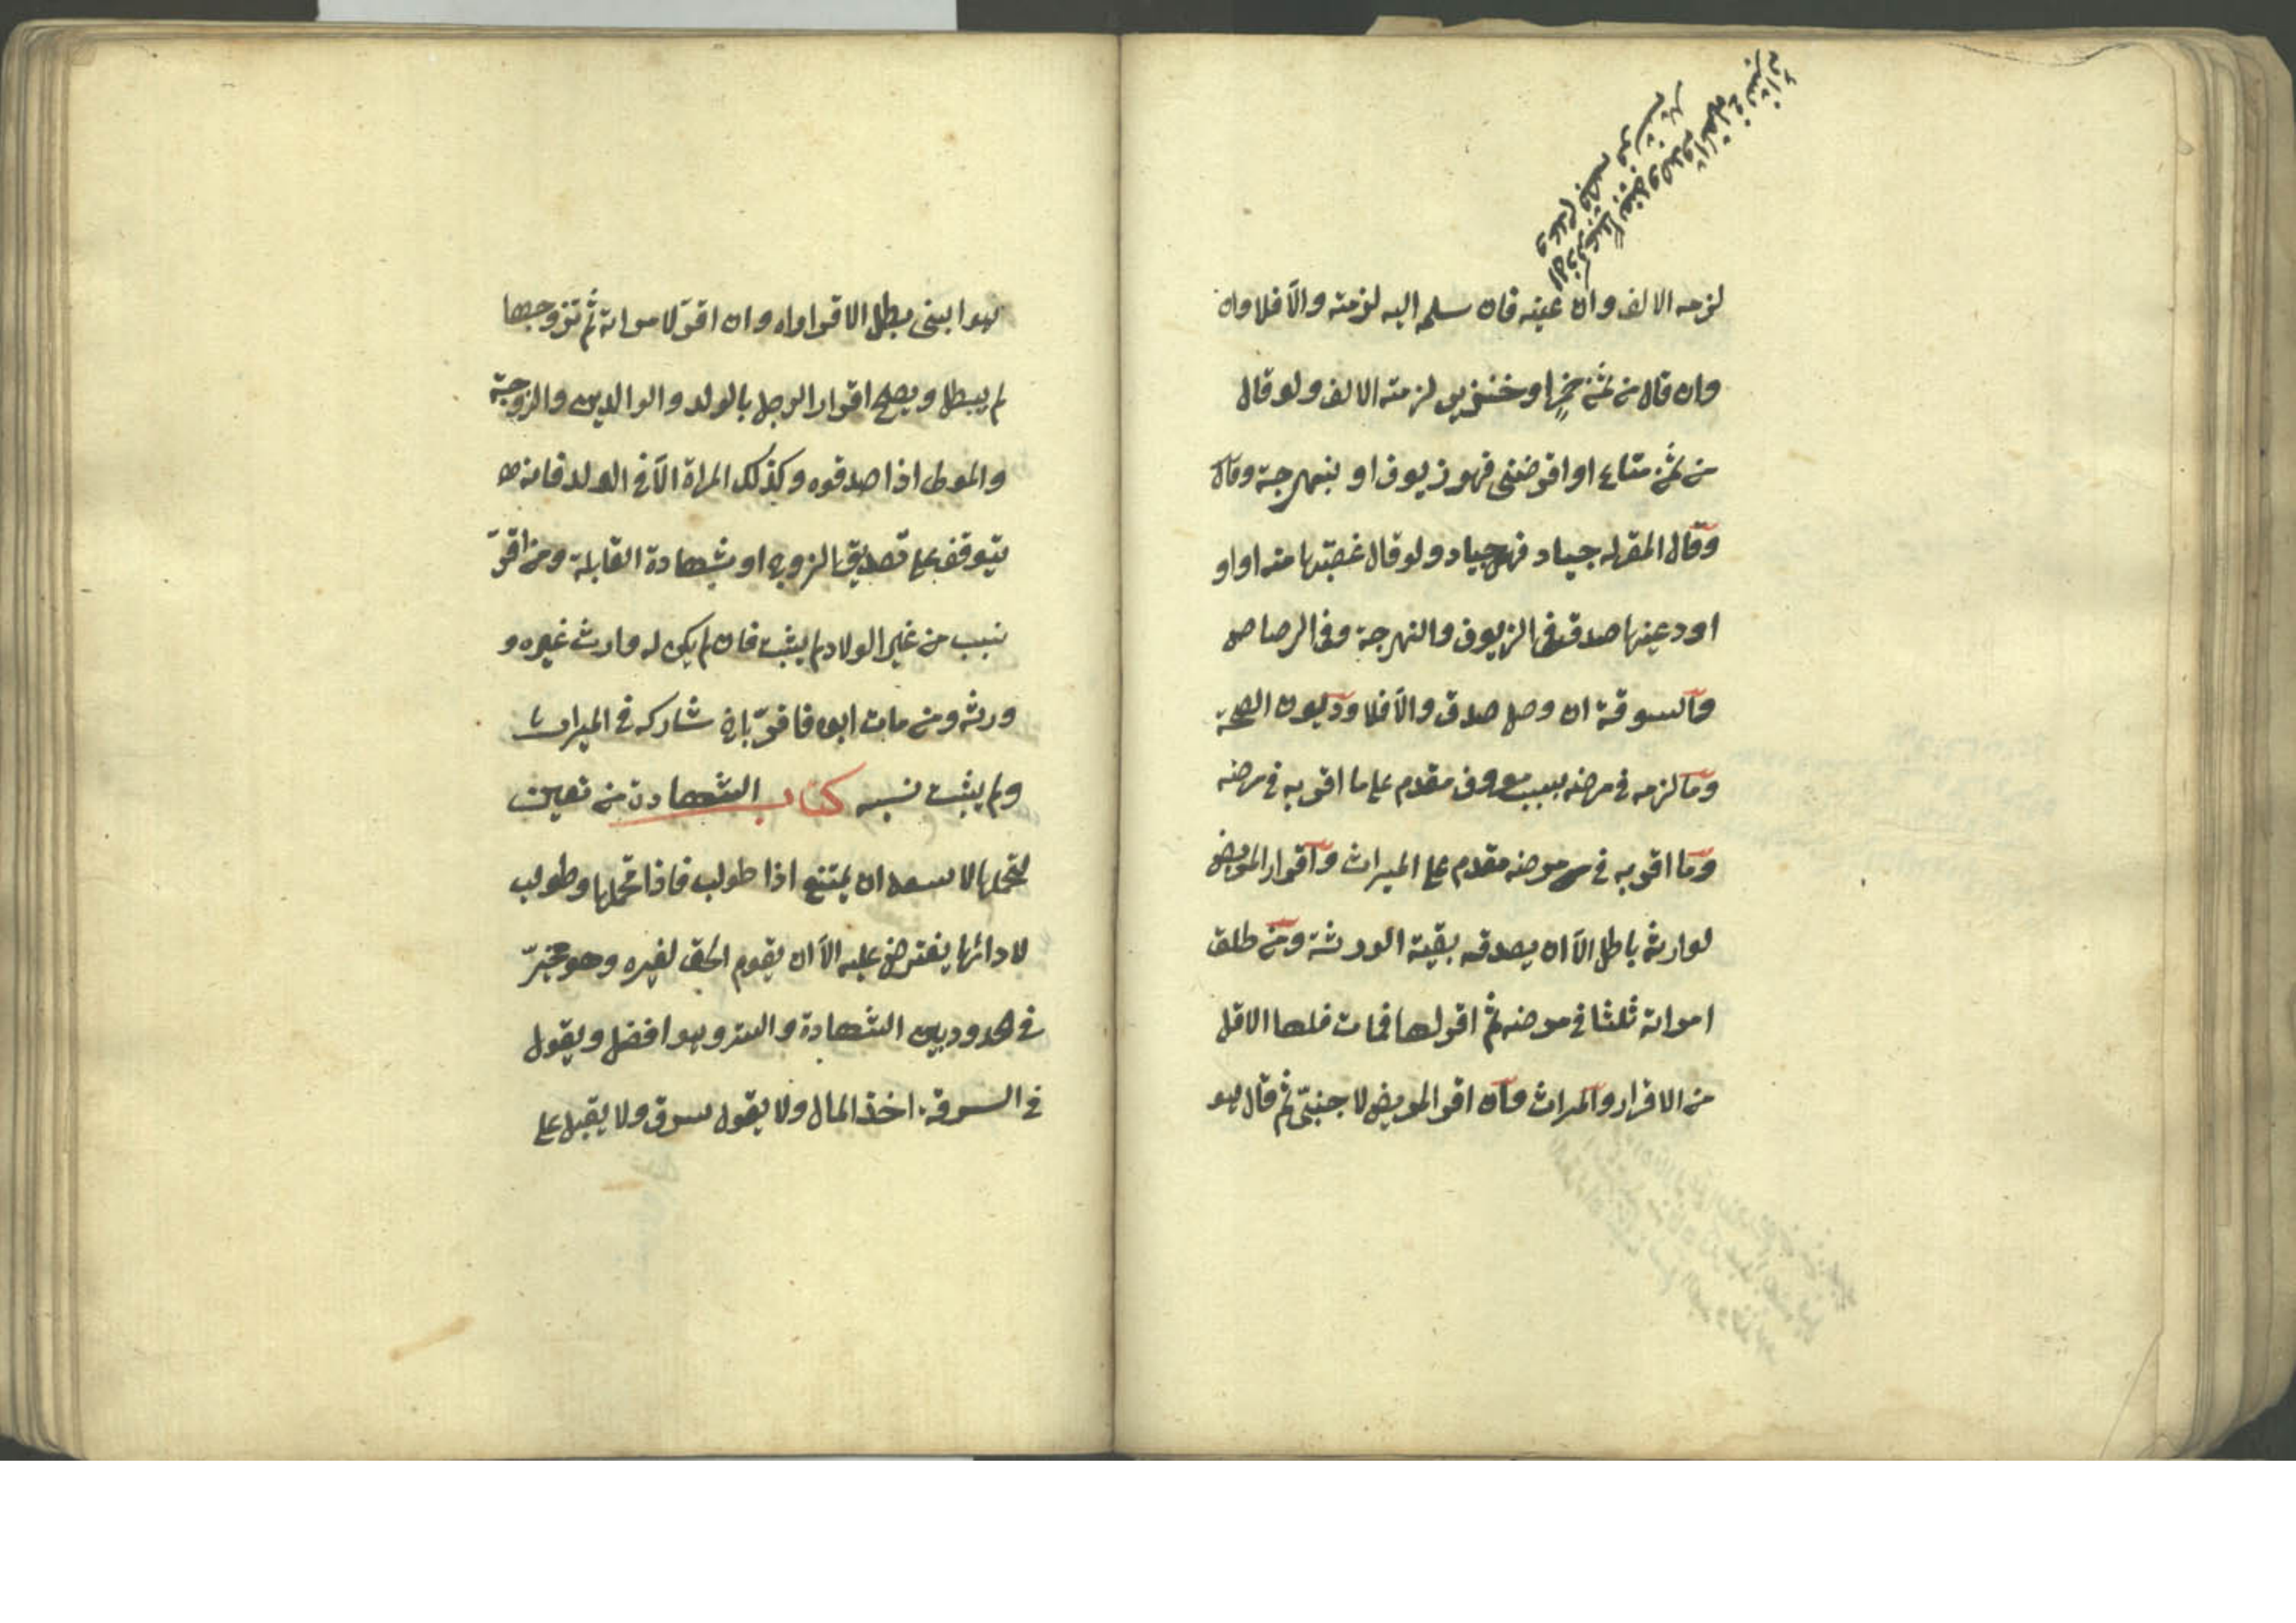 لزمه الالف وان عينه فان سلمه اليه لزمته والآ فلا وان
وان قال من ثمن خمر او خنزير لزمته الالف ولو قال
من ثمن متاع او اقرضنى فهو زيوف او بنهرجة وقال
وقال المقر له جياد فهى جياد ولو قال غصبتها منه او او
اودعنيها صدق فى الزيوف والنهرجة وفى الرصاص
والستوقة ان وصل صدق والآ فلا وديون الصحة
وما لزمه فى مرضه بسبب معروف مقدم على ما اقر به فى مرضه
وما اقر به فى مرضه مقدم على الميراث واقرار المريض
لوارثه باطل الآ ان يصدقه بقية الورثة ومن طلق
امراته ثلثا فى مرضه ثم اقر لها فمات فلها الاقل
من الاقرار والميراث وان اقر المريض لاجنبى ثم قال هو
هو ابنى بطل الاقراراه وان اقر لامراته ثم تزوجها
لم يبطل ويصح اقرار الرجل بالولد والوالدين والزوجة
والمولى اذا صدقوه وكذلك المراة الآ فى الولد فانه
يتوقف على تصديق الزوج او بشهادة القابلة ومن اقرّ
بنسب من غير الولاد لم يثبت فان لم يكن له وارث غيره و
ورثه ومن مات ابوه فاقرّ باخ شاركه فى الميراث
ولم يثبت نسبه كتاب الشهادة من تعين
لتحملها لا يسعه ان يمتنع اذا طولب فاذا تحملها وطولب
لادائها يفترض عليه الآ ان يقوم الحق لغيره وهو مخيرّ
فى الحدود بين الشهادة والستر وهو افضل ويقول
فى السرقة اخذ المال ولا يقول سرق ولا يقبل على